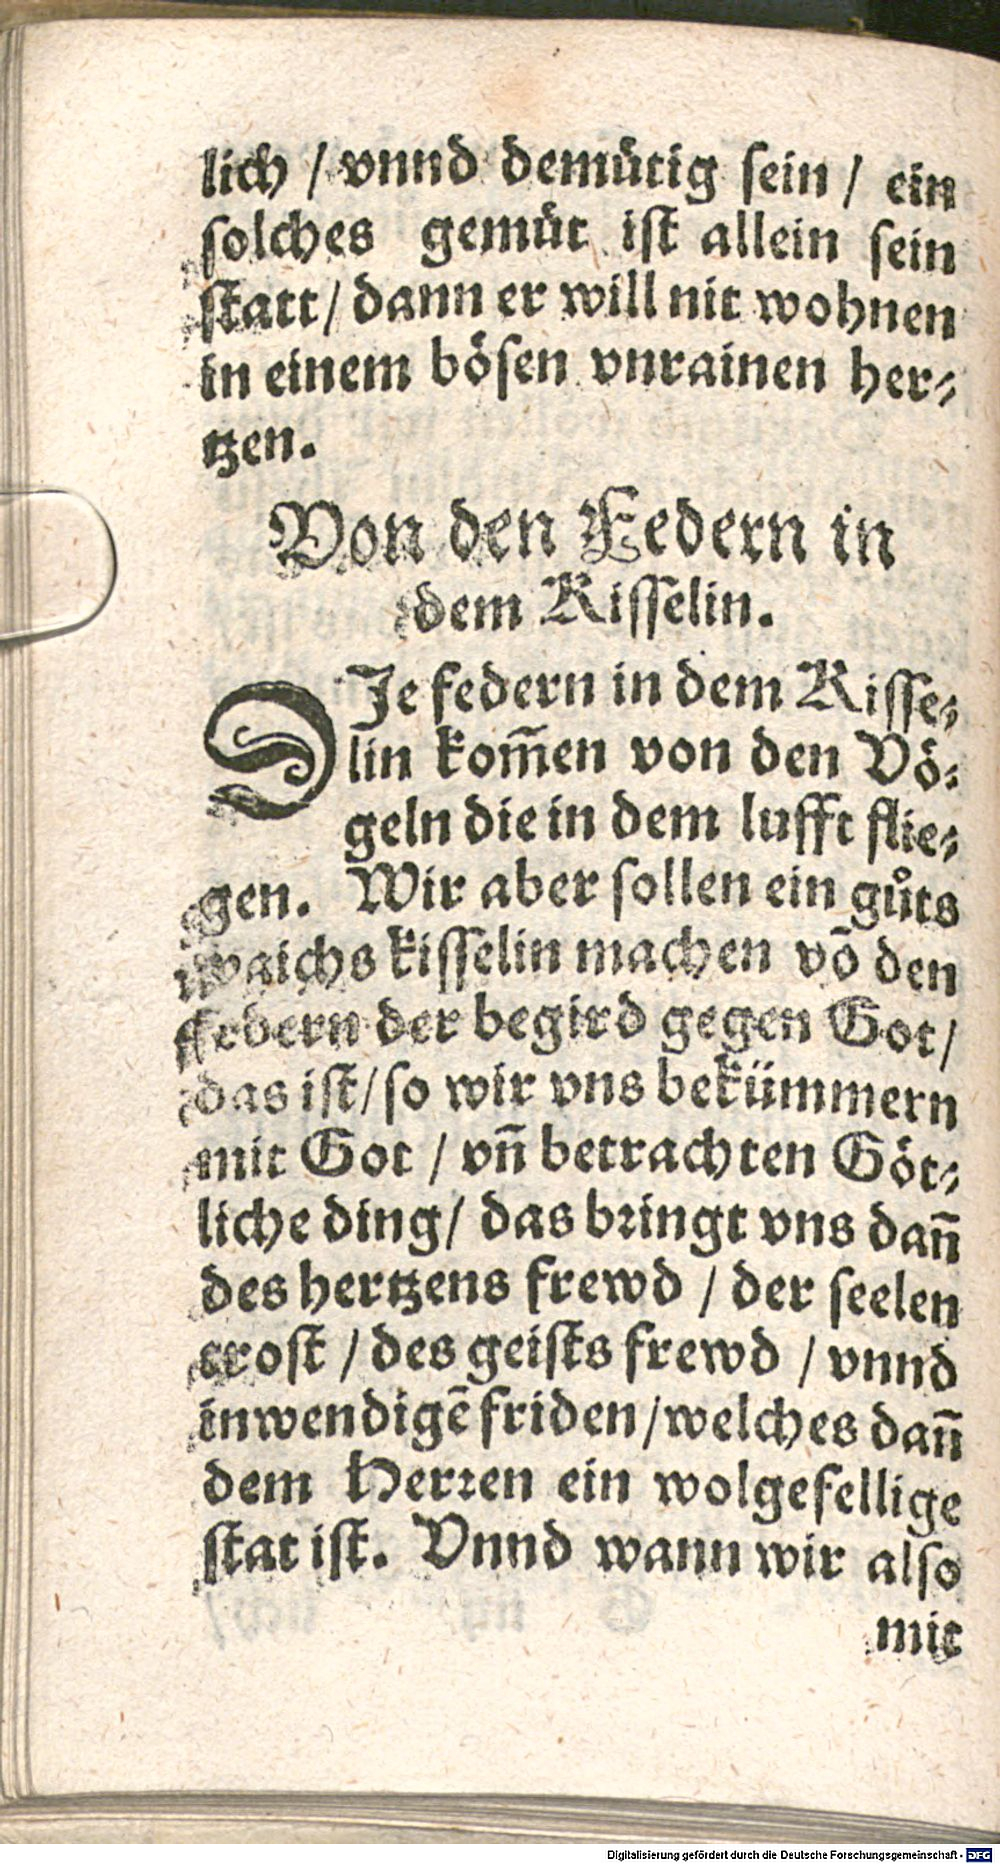 lich / vnnd demütig sein / ein
solches gemüt ist allein sein
statt / dann er will nit wohnen
in einem bösen vnrainen her⸗
tzen.
Von den Federn in
dem Kisselin.
DJe federn in dem Kisse⸗
lin kom̄en von den Vö⸗
geln die in dem lufft flie⸗
gen. Wir aber sollen ein gůts
waichs kisselin machen vō den
federn der begird gegen Got /
das ist / so wir vns bekümmern
mit Got / vn̄ betrachten Göt⸗
liche ding / das bringt vns dan̄
des hertzens frewd / der seelen
trost / des geists frewd / vnnd
inwendigē friden / welches dan̄
dem Herren ein wolgefellige
stat ist. Vnnd wann wir also
mit
Digitalisierung gefördert durch die Deutsche Forschungsgemeinschaft - DFG